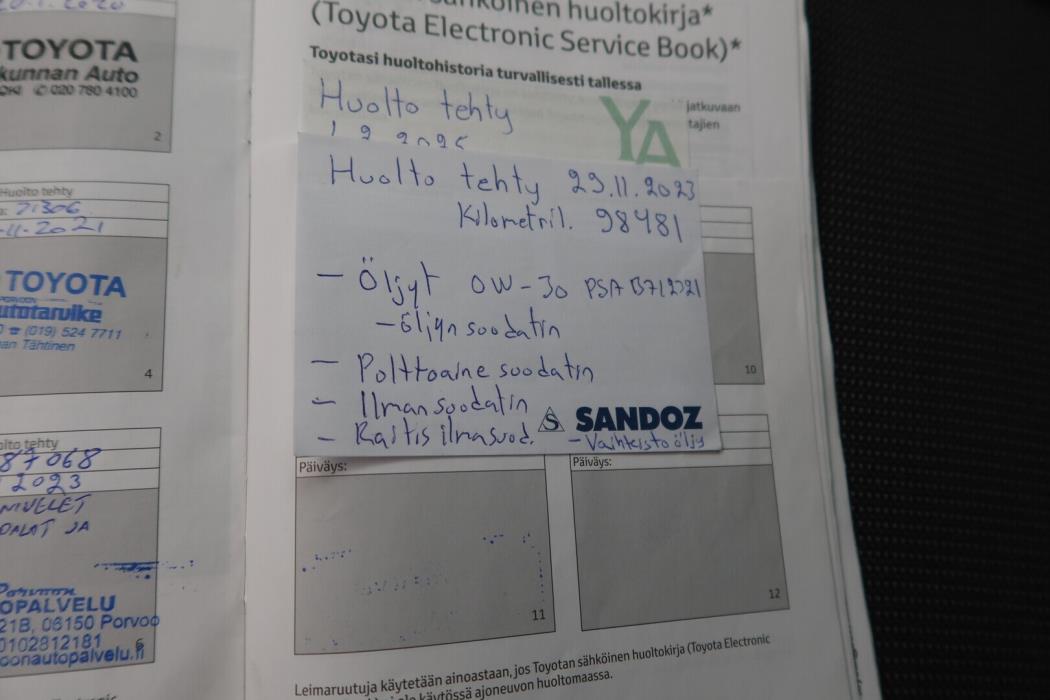 TOYOTA
kunnan Auto
020 780 4100
2
Huolto tehty
71306
-11-2021
TOYOTA
PORVOON
Autotarvike
☎ (019) 524 7711
Tähtinen
4
olto tehty
87068
2023
NIVELET
JA
Porvoon
OPALVELU
21B, 06150 Porvoo
0102812181
6
oonautopalvelu.fi
köinen huoltokirja*
(Toyota Electronic Service Book)*
Toyotasi huoltohistoria turvallisesti tallessa
jatkuvaan
tajien
Huolto tehty
YA
Huolto tehty 29.11.2023
Kilometril. 98481
- Öljyt 0W-30 PSA B712321
- öljyn suodatin
- Polttoaine suodatin
- Ilman suodatin
- Raitis ilmasuod.
S SANDOZ
- Vaihteisto öljy
10
Päiväys:
Päiväys:
11
12
Leimaruutuja käytetään ainoastaan, jos Toyotan sähköinen huoltokirja (Toyota Electronic
ole käytössä ajoneuvon huoltomaassa.